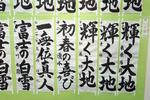 輝く大地
輝く大地
初春の喜び
一無位真人
富士の白雪
富士の白雪